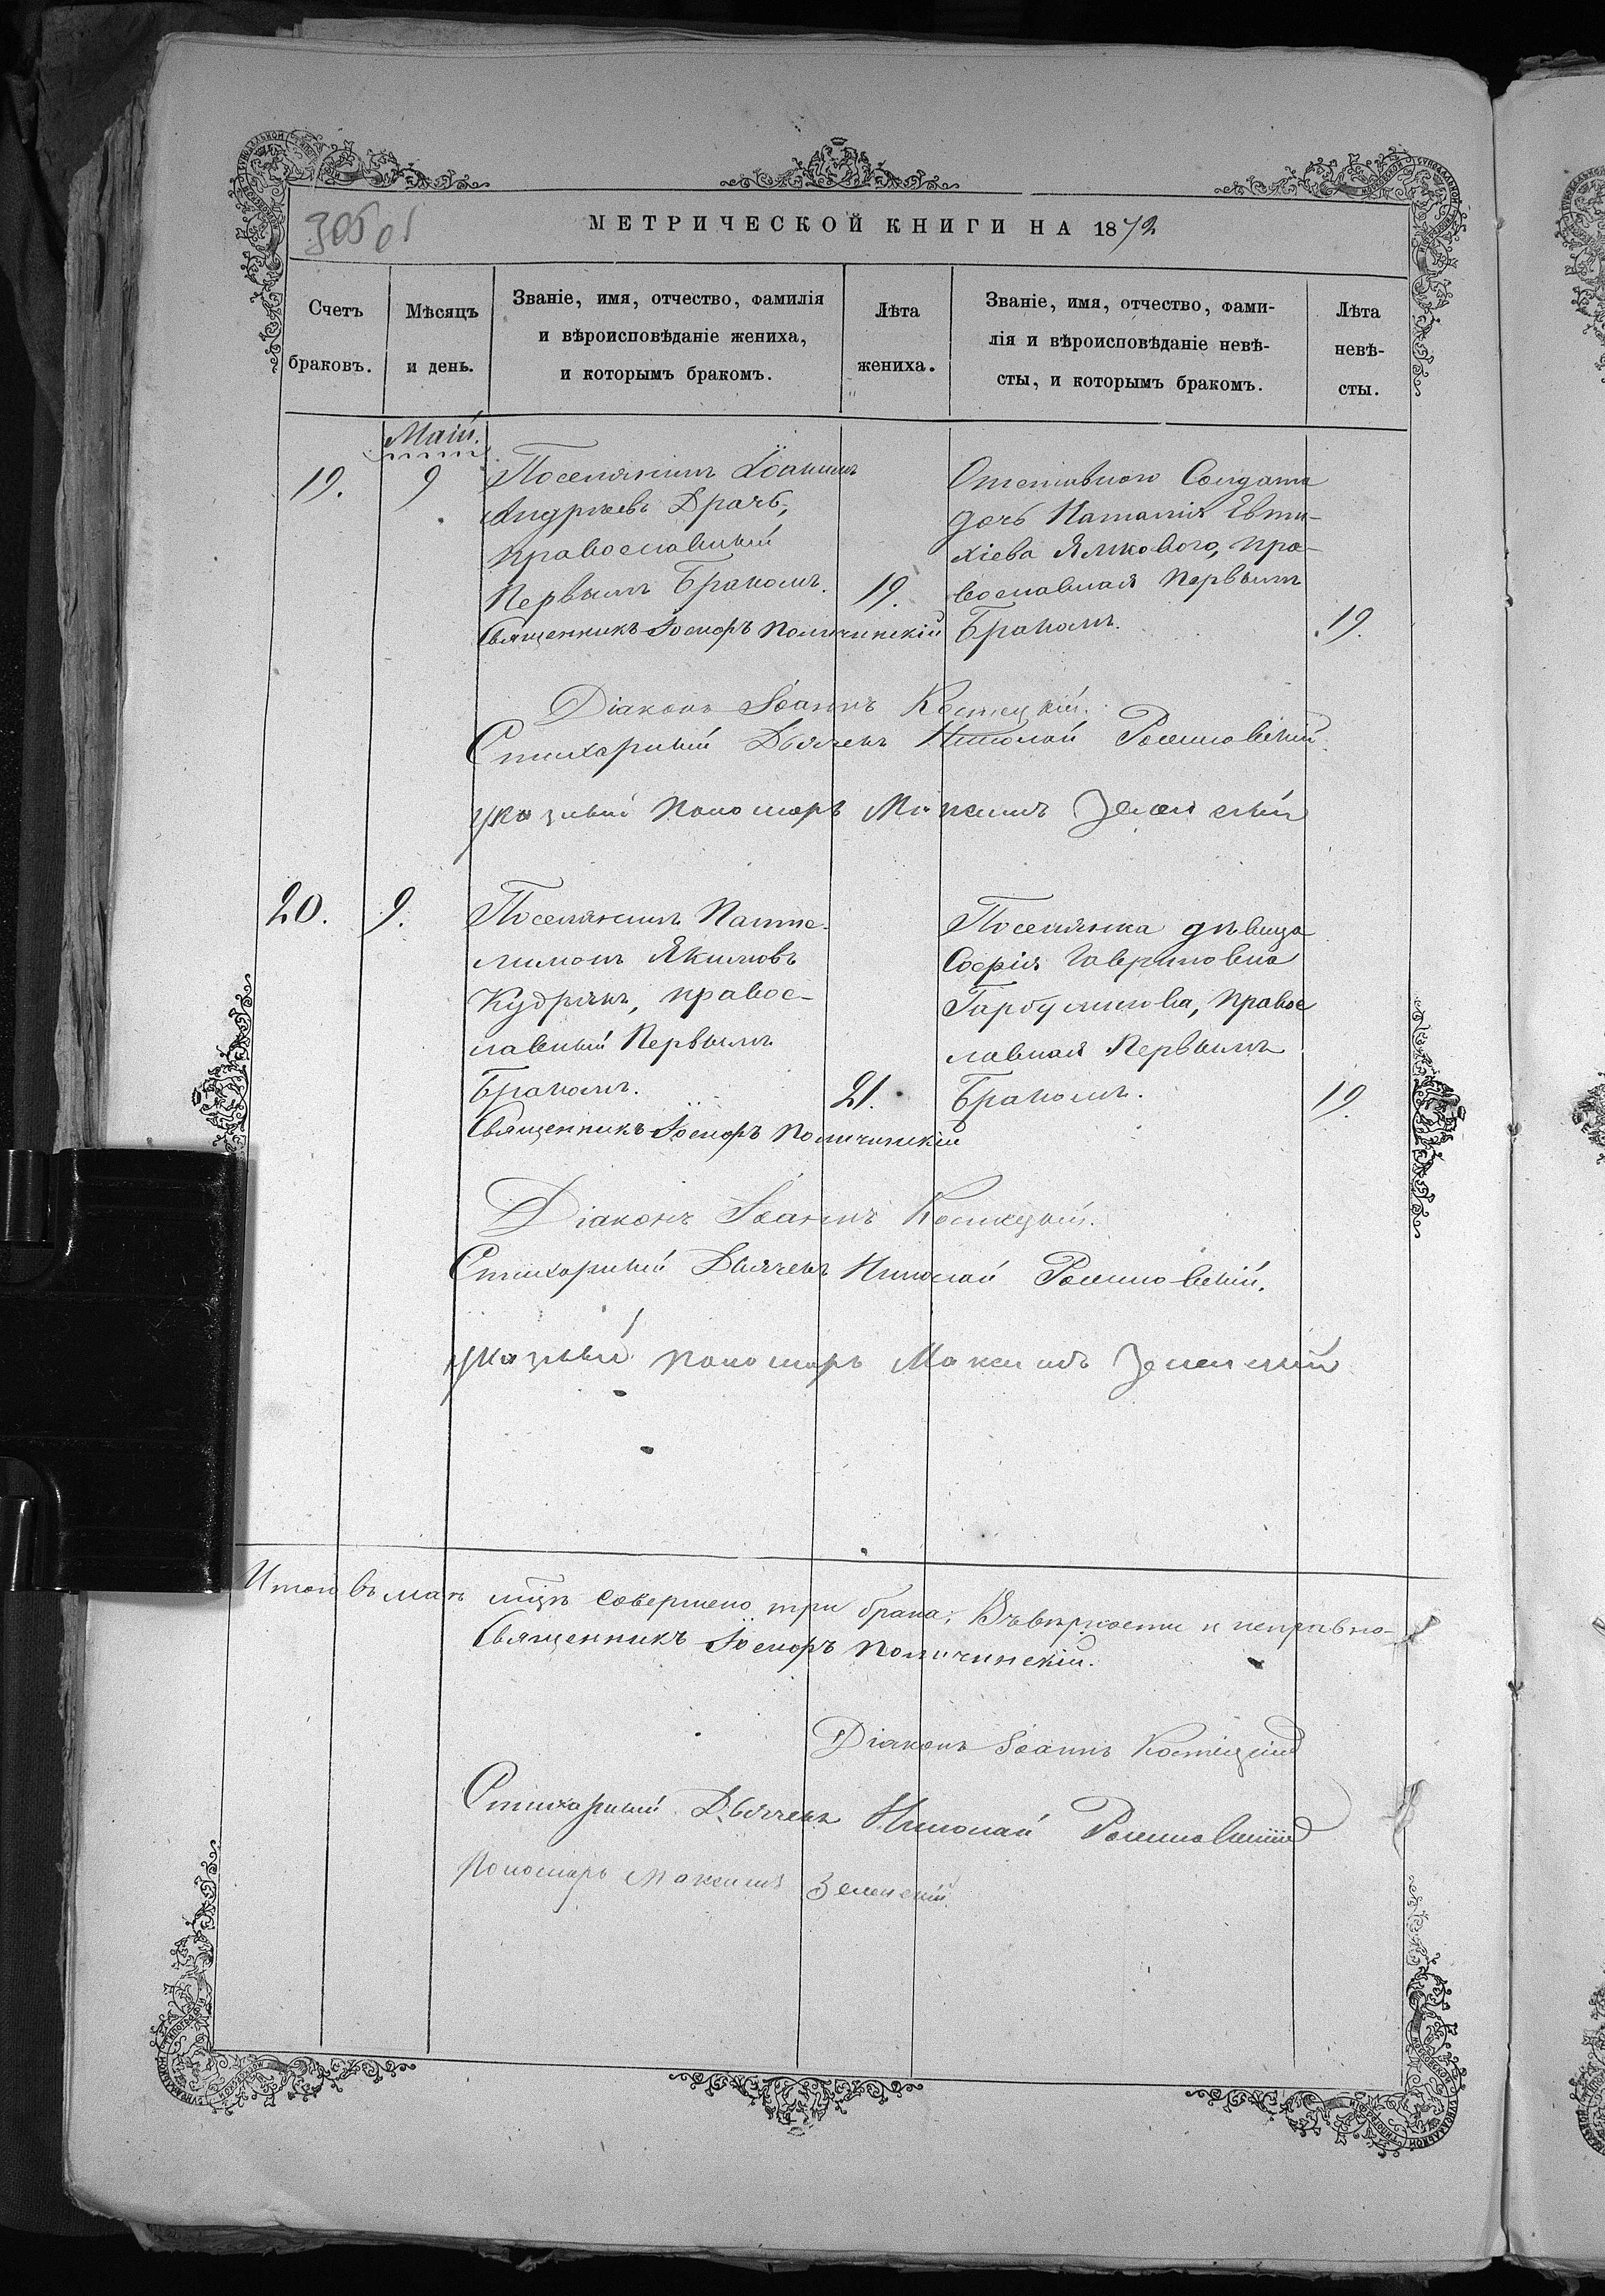 305 об
МЕТРИЧЕСКОЙ КНИГИ НА 1872
Счетъ браковъ.
Мѣсяцъ и день.
Званіе, имя, отчество, фамилія
и вѣроисповѣданіе жениха,
и которымъ бракомъ.
Лѣта жениха.
Званіе, имя, отчество, фами-
лія и вѣроисповѣданіе невѣ-
сты, и которымъ бракомъ.
Лѣта невѣ-
сты.
Маій.
19.
9
Поселянинъ Іоаннъ
Андреевъ Драчъ,
православный
Первымъ Бракомъ.
19.
Отставного Солдата
дочь Наталія Евти-
хіева Ямкового, пра-
вославная Первымъ
Бракомъ.
19.
Священникъ Іосифъ Поличинскій
Діаконъ Іоаннъ Костецкій.
Стихарный Дьячекъ Николай Рошновскій.
указный Пономарь Максимъ Зеленскій
20.
9.
Поселянинъ Панте-
лимонъ Якимовъ
Кудрякъ, правос-
лавный Первымъ
Бракомъ.
21.
Поселянка дѣвица
Софія Гавриловна
Гарбузникова, Правос
лавная Первымъ
Бракомъ.
19.
Священникъ Іосифъ Поличинскій
Діаконъ Іоаннъ Костецкій.
Стихарный Дьячекъ Николай Рошновскій.
указный пономарь Максимъ Зеленскій
Итого въ маѣ мцѣ совершено три брака; Въ вѣрности и исправно-
Священникъ Іосифъ Поличинскій.
Діаконъ Іоаннъ Костецкій
Стихарный Дьячекъ Николай Рошновскій
Пономарь Максимъ Зеленскій.